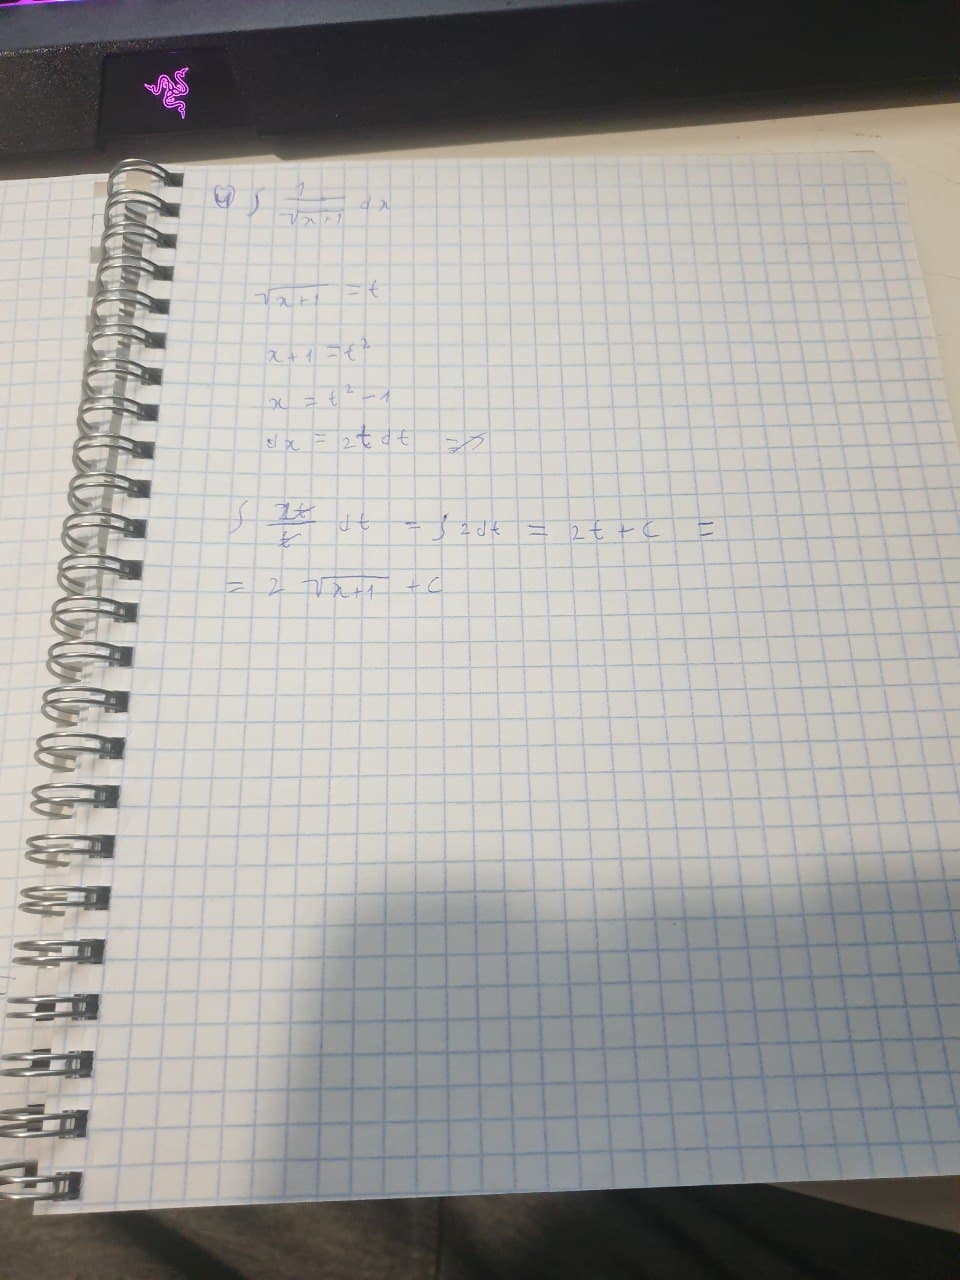 ④ ∫ 1/√(x+1) dx
√(x+1) = t
x+1 = t²
x = t² - 1
dx = 2t dt =>
∫ 2t/t dt = ∫ 2dt = 2t + C =
= 2 √(x+1) + C